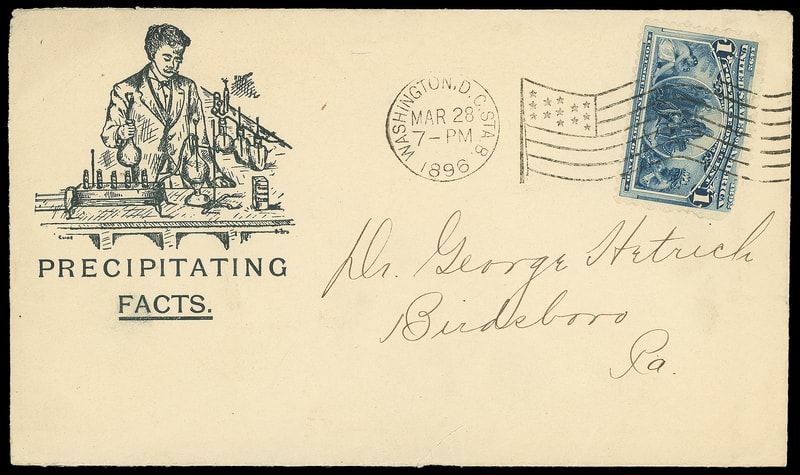 PRECIPITATING
FACTS.
WASHINGTON, D.C. STA. B.
MAR 28
7-PM
1896
1
1
Dr. George Hetrich
Birdsboro
Pa.